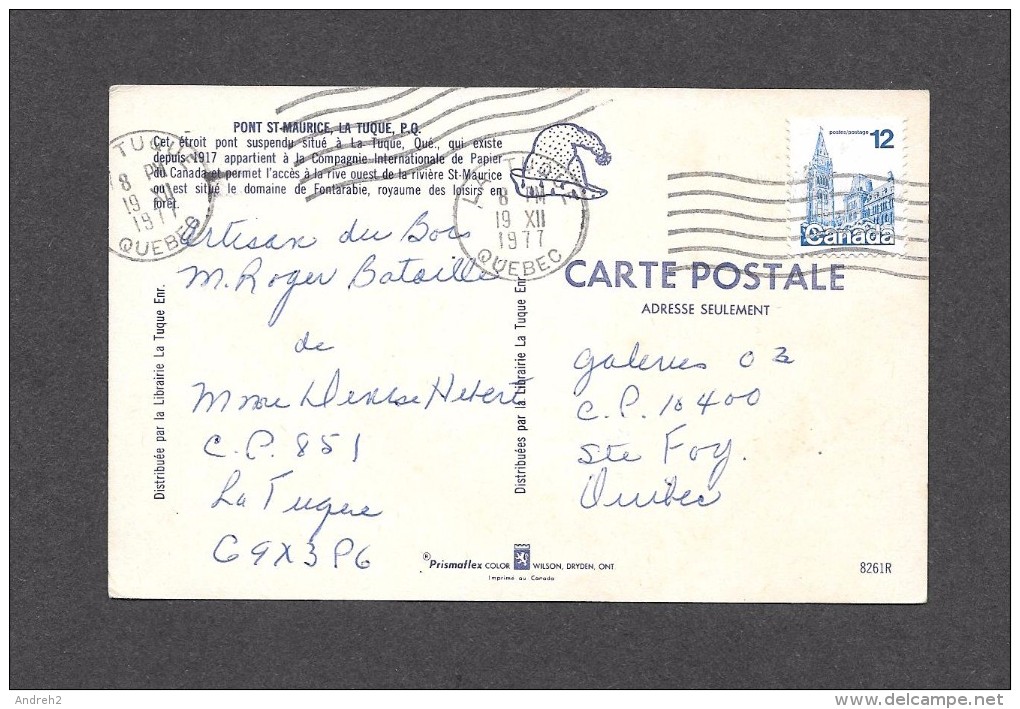 PONT ST-MAURICE, LA TUQUE, P.Q.
Cet étroit pont suspendu situé à La Tuque, Qué., qui existe
depuis 1917 appartient à la Compagnie Internationale de Papier
du Canada et permet l'accès à la rive ouest de la rivière St-Maurice
où est situé le domaine de Fontarabie, royaume des loisirs en
forêt.
TUQUE
8 PM
19 XII
1977
QUEBEC
LA TUQUE
8 PM
19 XII
1977
QUEBEC
postes/postage 12
Canada
Artisan du Bois
M. Roger Bataille
de
Mme Denise Hebert
C.P. 851
La Tuque
G9X3P6
Distribuée par la Librairie La Tuque Enr.
Distribuées par la Librairie La Tuque Enr
CARTE POSTALE
ADRESSE SEULEMENT
Galeries 03
C.P. 10400
Ste Foy.
Quibec
® Prismaflex COLOR WILSON, DRYDEN, ONT
Imprimé au Canada
8261R
Andreh2
www.delcampe.net